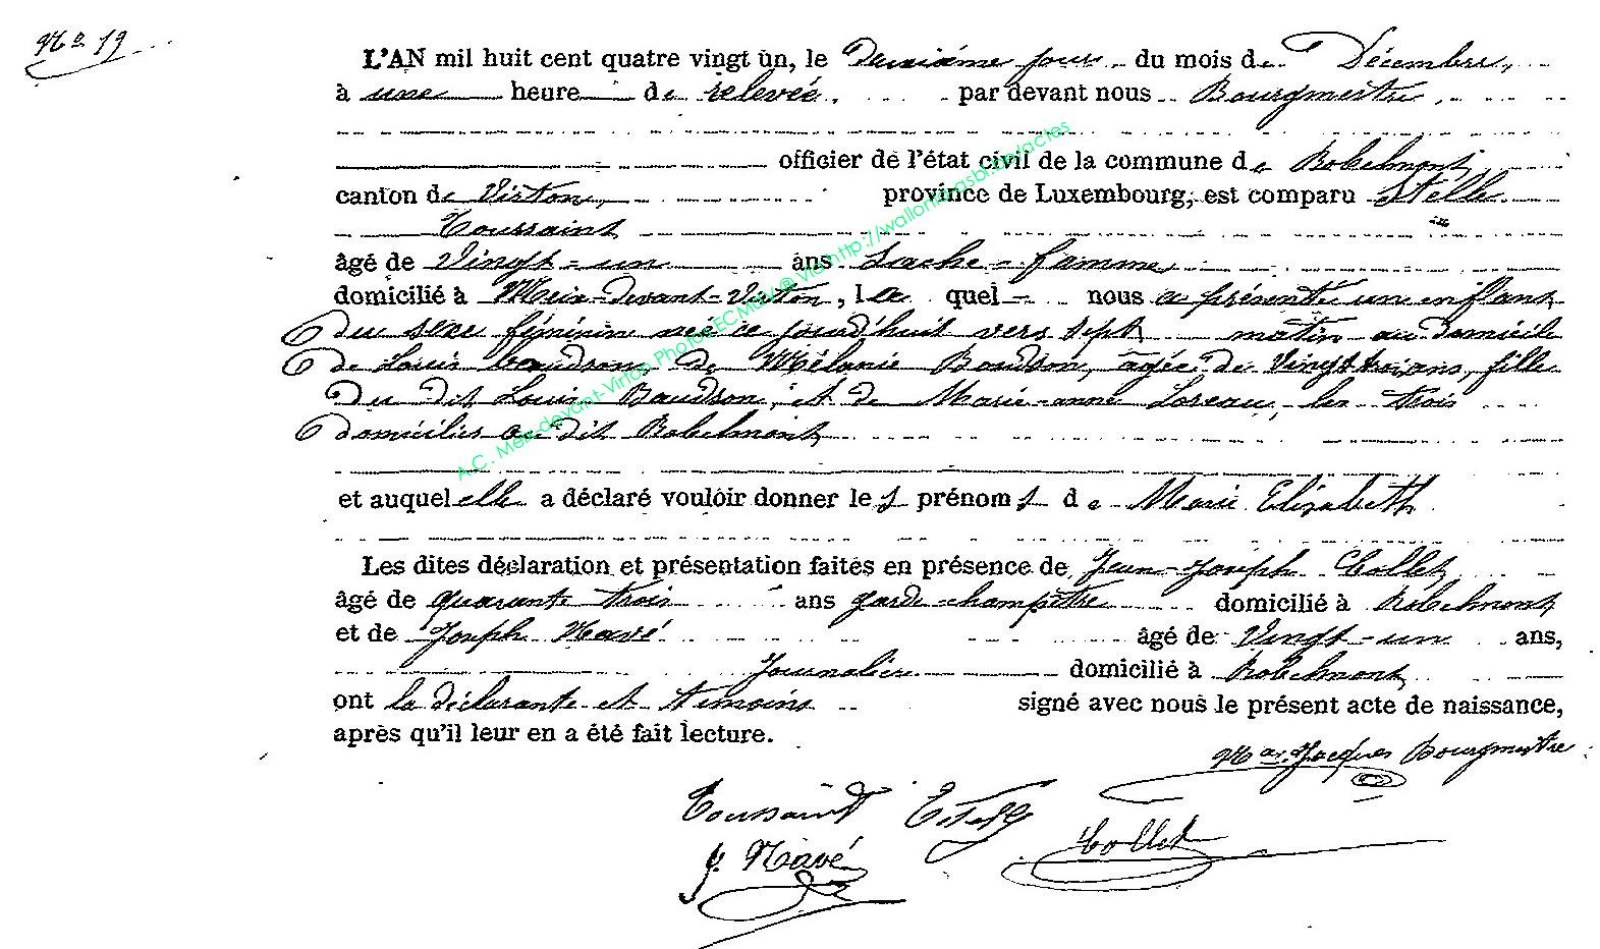 No 19
L'AN mil huit cent quatre vingt un, le Deuxième jour du mois de Décembre,
à une heure de relevée, par devant nous Bourgmestre,
officier de l'état civil de la commune de Robelmont,
canton de Virton, province de Luxembourg, est comparu Stelle
Toussaint
âgé de Vingt-un ans Sache-femme,
domicilié à Meix-Devant-Virton, la quel nous a présenté un enfant
du sexe féminin née ce jourd'huit vers sept matin au domicile
de Louis Baudson, de Mélanie Baudson, âgée de Vingt trois ans, fille
du dit Louis Baudson, et de Marie-anne Loreau, les trois
domiciliés au dit Robelmont
et auquel elle a déclaré vouloir donner les prénoms de Marie Elisabeth
Les dites déclaration et présentation faites en présence de Jean-Joseph Collet,
âgé de quarante trois ans garde-champêtre domicilié à Robelmont
et de Joseph Mavé âgé de Vingt-un ans,
Journalier domicilié à Robelmont
ont la déclarante et témoins signé avec nous le présent acte de naissance,
après qu'il leur en a été fait lecture.
Jacques Bourgmestre
Toussaint Collet
J. Mavé
A.C. Meix-devant-Virton Photos ECMDV @ via http://wallonia-asbl.be/actes